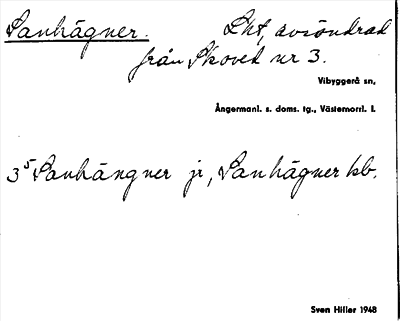 Sanhägner. Lht, avsöndrad
från Skoved nr 3.
Vibyggerå sn,
Ångermanl. s. doms. tg., Västernorrl. l.
3⁵ Sanhängner jr, Sanhägner kb.
Sven Hiller 1948